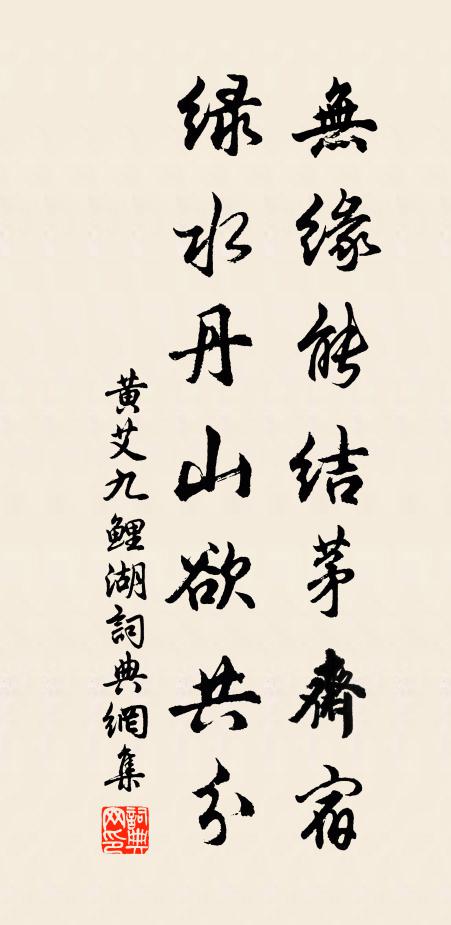 無緣能結茅齋宿
緑水丹山欲共分
黄艾九鯉湖詞典網集
詞典
网印